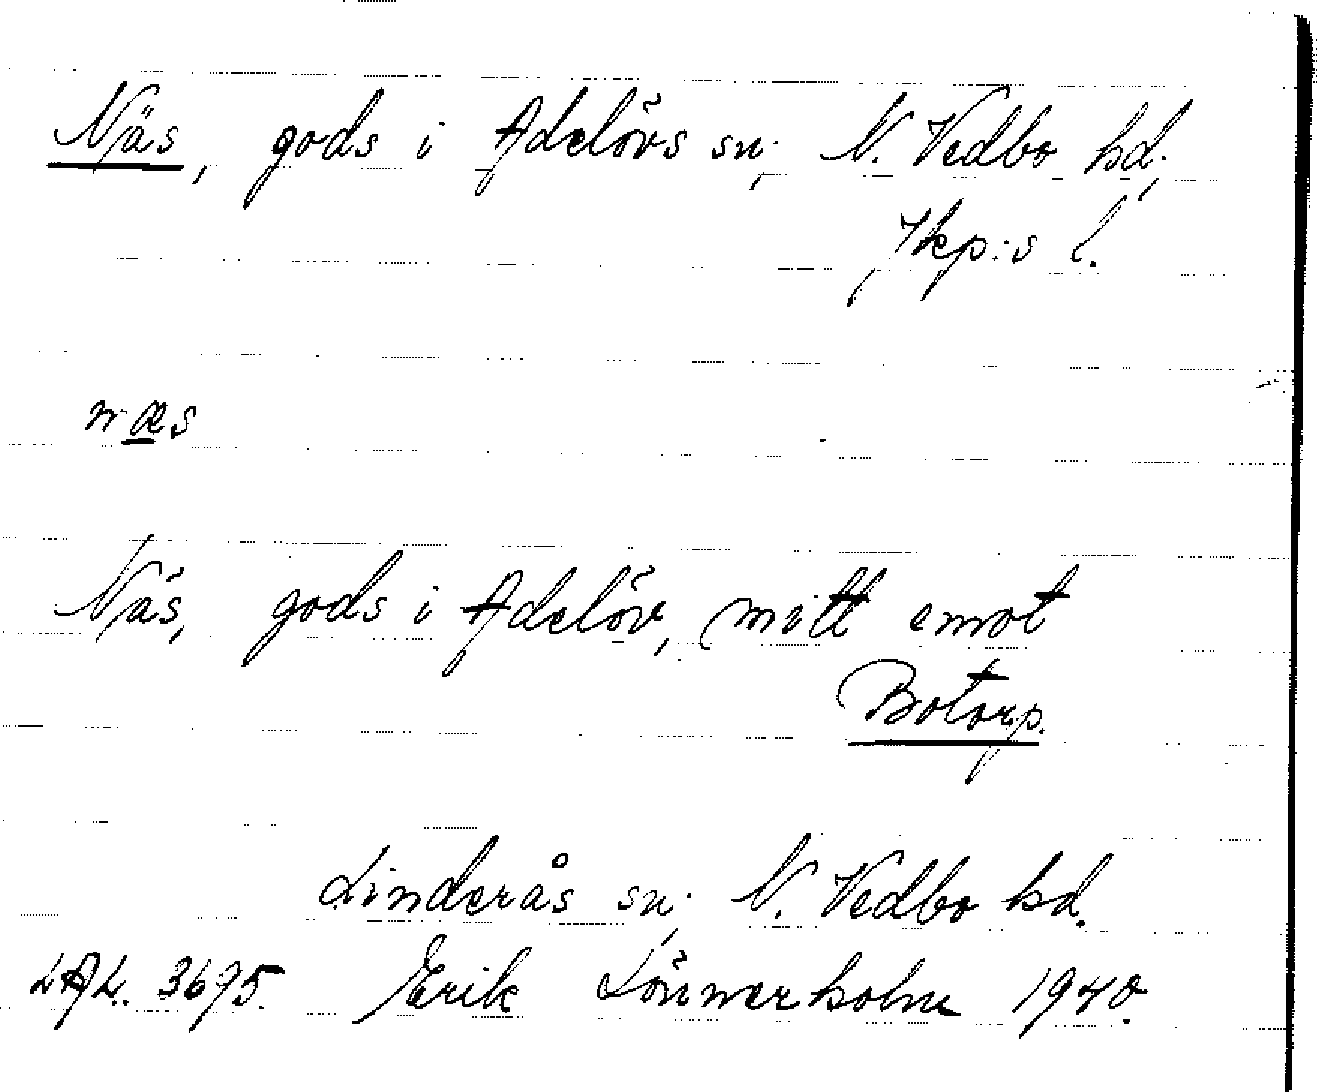 Näs, gods i Adelövs sn; N. Vedbo hd;
Jkp:s l.
næs
Näs, gods i Adelöv, mitt emot
Botorp.
Linderås sn; N. Vedbo hd.
LAL. 3675. Erik Lönnerholm 1940.